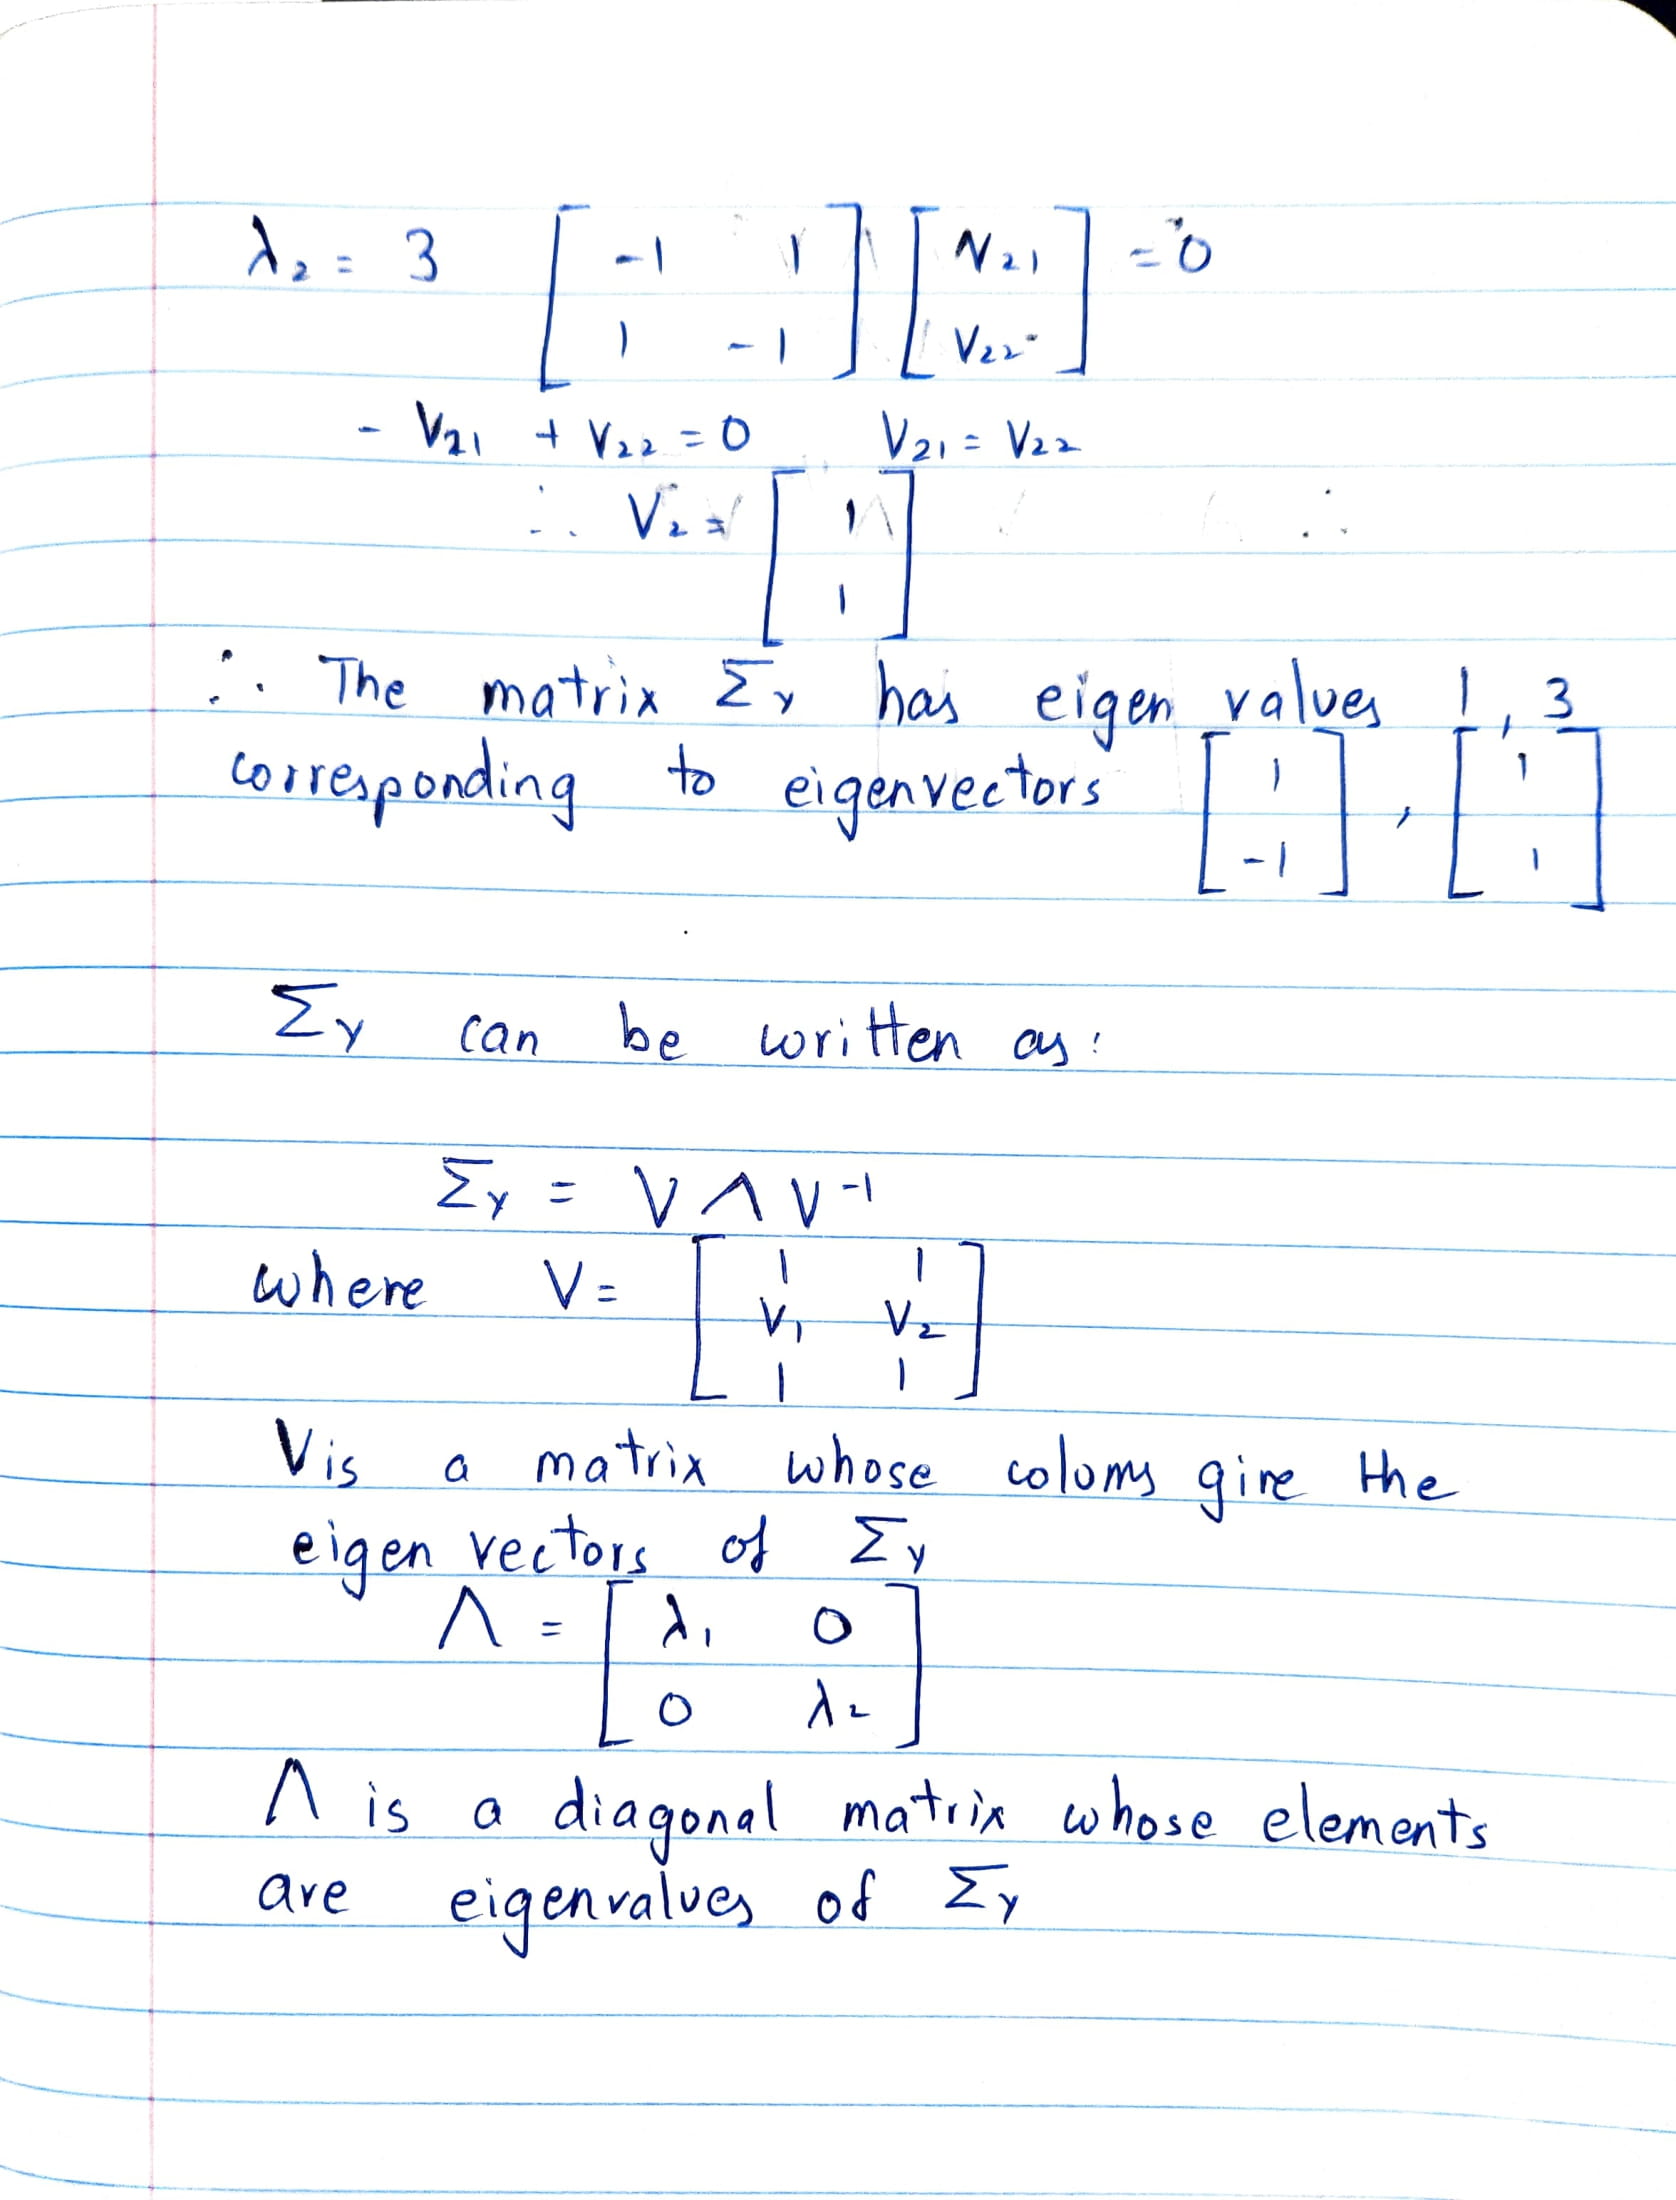 λ₂ = 3 [ -1 1 ; 1 -1 ] [ V₂₁ ; V₂₂ ] = 0
- V₂₁ + V₂₂ = 0 V₂₁ = V₂₂
∴ V₂ = [ 1 ; 1 ]
∴ The matrix Σ_Y has eigen values 1, 3
corresponding to eigenvectors [ 1 ; -1 ], [ 1 ; 1 ]
Σ_Y can be written as:
Σ_Y = V Λ V⁻¹
where V = [ | | ; V₁ V₂ ; | | ]
V is a matrix whose coloms give the
eigen vectors of Σ_Y
Λ = [ λ₁ 0 ; 0 λ₂ ]
Λ is a diagonal matrix whose elements
are eigenvalues of Σ_Y